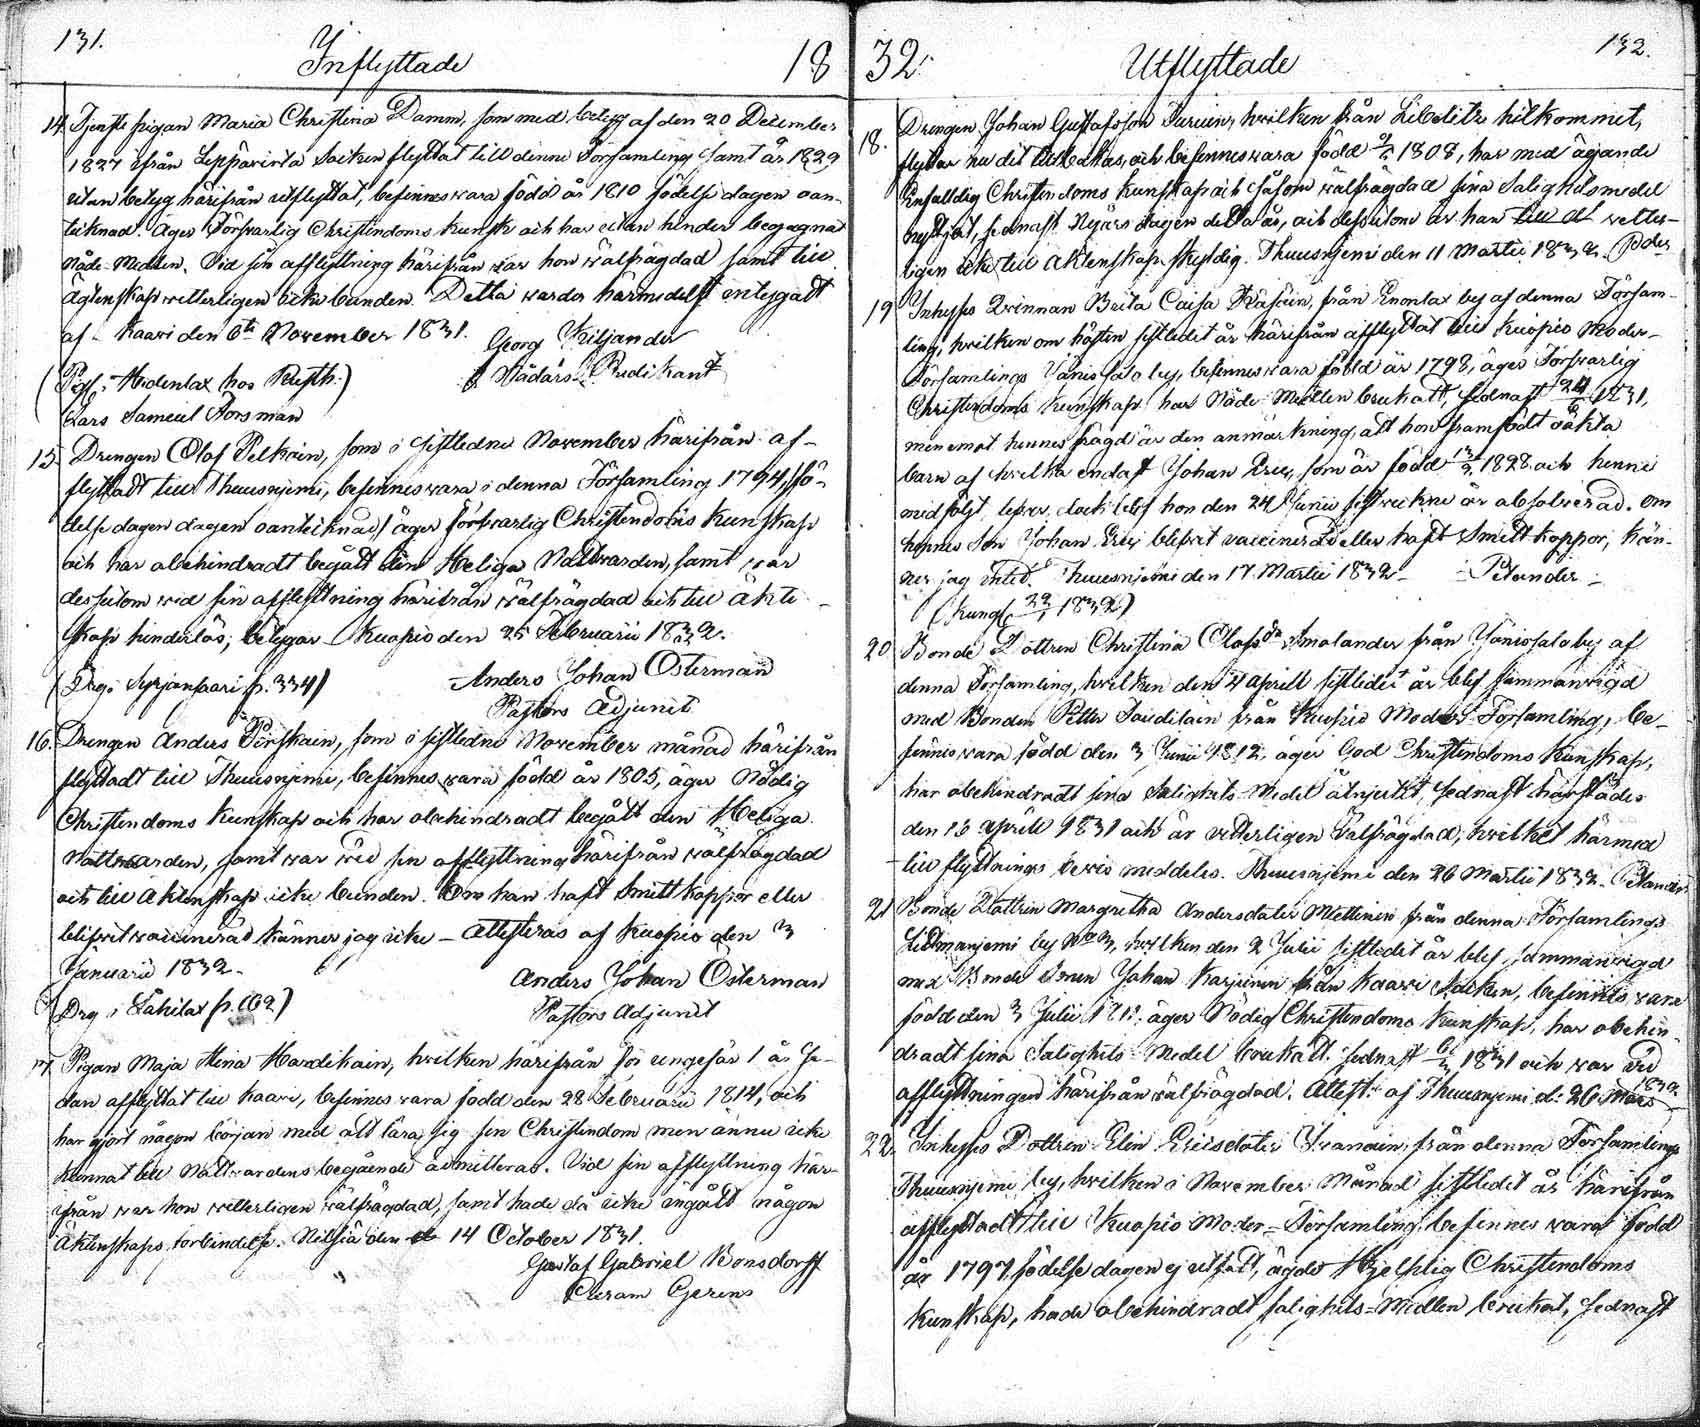 131.
Inflyttade
18
14. Tjenste pigan Maria Christina Damm, som med betyg af den 20 December
1827 ifrån Leppävirta Socken flyttat till denne Församling samt år 1829
utan betyg härifrån utflyttat, befinnes vara född år 1810 födelse dagen oan-
tecknad. Äger Försvarlig Christendoms Kunsk och har utan hinder begagnat
Nåde-Medlen. Vid sin afflyttning härifrån var hon wälfrägdad samt till
Ägtenskap vetterligen icke bunden. Detta varder härmedelst intygadt
af Kaavi den 6te November 1831.
Georg Kiljander
Nådårs Predikant
(Pig. i Hidenlax hos Rusth.)
Lars Samuel Forsman
15. Drengen Olof Pelkain, som i sistledne November härifrån af-
flyttadt till Thuusnjemi, befinnes vara i denna Församling 1794, /fö-
delse dagen dagen oantecknad/ äger försvarlig Christendoms Kunskap
och har obehindradt begått den Heliga Nattvarden, samt var
dessutom wid sin afflyttning härifrån wälfrägdad och till äkte-
skap hinderlös, betygar Kuopio den 25 Februarii 1832.
Anders Johan Österman
Pastors Adjunct
(Drg i Syrjansaari p. 334)
16. Drengen Anders Pörskain, som i sistledne November månad härifrån
flyttadt till Thuusnjemi, befinnes vara född år 1805, äger Nödig
Christendoms Kunskap och har obehindradt begått den Heliga
Nattvarden, samt var vid sin afflyttning härifrån wälfrägdad
och till Äktenskap icke bunden. Om han haft Smittkoppor eller
blifvit vaccinerad känner jag icke - attesteras af Kuopio den 3
Januarii 1832.
Anders Johan Österman
Pastors Adjunct
(Drg i Lähilax p. 102)
17. Pigan Maja Stina Hardikain, hvilken härifrån för ungefär 1 år se-
dan afflyttat till Kaavi, befinnes vara född den 28 Februarii 1814, och
har gjort någon början med att lära sig sin Christendom men ännu icke
kunnat till Nattvardens begående admitteras. Vid sin afflyttning här-
ifrån var hon vetterligen wälfrägdad, samt hade då icke ingått någon
Äktenskaps forbindelse. Nilsiä den 14 October 1831.
Gustaf Gabriel Bonsdorff
Curam Gerens
32.
Utflyttade
132.
18. Drengen Johan Gustafsson Turuin, hvilken från Libelitz hitkommit,
flyttar nu dit tillbakas, och befinnes vara född 1808, har med ägande
Enfalldig Christendoms Kunskap och såsom wälfrägdad sina Salighetsmedel
nyttjat, sednast Nyårs dagen detta år, och dessutom är han vetter-
ligen icke till äktenskap skyldig. Thuusnjemi den 11 Martii 1832.
19. Inhyses Qvinnan Brita Caisa Räsäin, från Enonlax by af denna Försam-
ling, hvilken om hösten sistledit år härifrån afflyttat till Kuopio Moder-
Församlings Vänissalo by, befinnes vara född år 1798, äger Försvarlig
Christendoms Kunskap har Nåde-Medlen brukatt, sednast 24/6 1831,
men emot hennes frägd är den anmärkning, att hon framfödt oäkta
barn af hvilka endast Johan Eric, som är född 13/2 1828 och henne
medföljt, lefver, dock blef hon den 24 Junii absolverad. Om
hennes Son Johan Eric blifvit vaccinerad eller haft Smittkoppor, kän-
ner jag intet. Thuusnjemi den 17 Martii 1832 - Petander -
(Kungl. 22/1 1832)
20. Bonde Dottren Christina Olofs dr Smolander från Vänissalo by af
denna Församling, hvilken den 4 aprill sistledit år blef Sammanvigd
med Bonden Petter Taudilain från Kuopio Moder Församling, be-
finnes vara född den 3 Junii 1812, äger God Christendoms Kunskap,
har obehindradt sina Salighets-Medel åtnjutit, sednast härstädes
den 13 aprill 1831 och är vetterligen Välfrägdad, hvilket härmed
till flyttnings bevis meddeles. Thuusnjemi den 26 Martii 1832. Petander
21. Bonde Dottren Margretha Andersdoter Miettinen från denna Församlings
Litmanjemi by No 3, hvilken den 2 Julii sistledit år blef sammanvigd
med Bonde Sonen Johan Karjunen från Kaavi Socken, befinnes vara
född den 3 Julii 181., äger Nödig Christendoms Kunskap, har obehin-
dradt sina Salighets-Medel brukatt. sednast 1831 och var vid
afflyttningen härifrån wälfrägdad. Attest. af Thuusnjemi d. 26 Mars 1832
22. Inhyses Dottren Elin Ericsdoter Ikonain från denna Församlings
Thuusnjemi by, hvilken i November Månad sistledit år härifrån
afflyttadt till Kuopio Moder-Församling, befinnes vara född
år 1797, födelse dagen ej utsatt, ägde Hjelplig Christendoms
Kunskap, hade obehindradt salighets-Medlen brukat, sednast